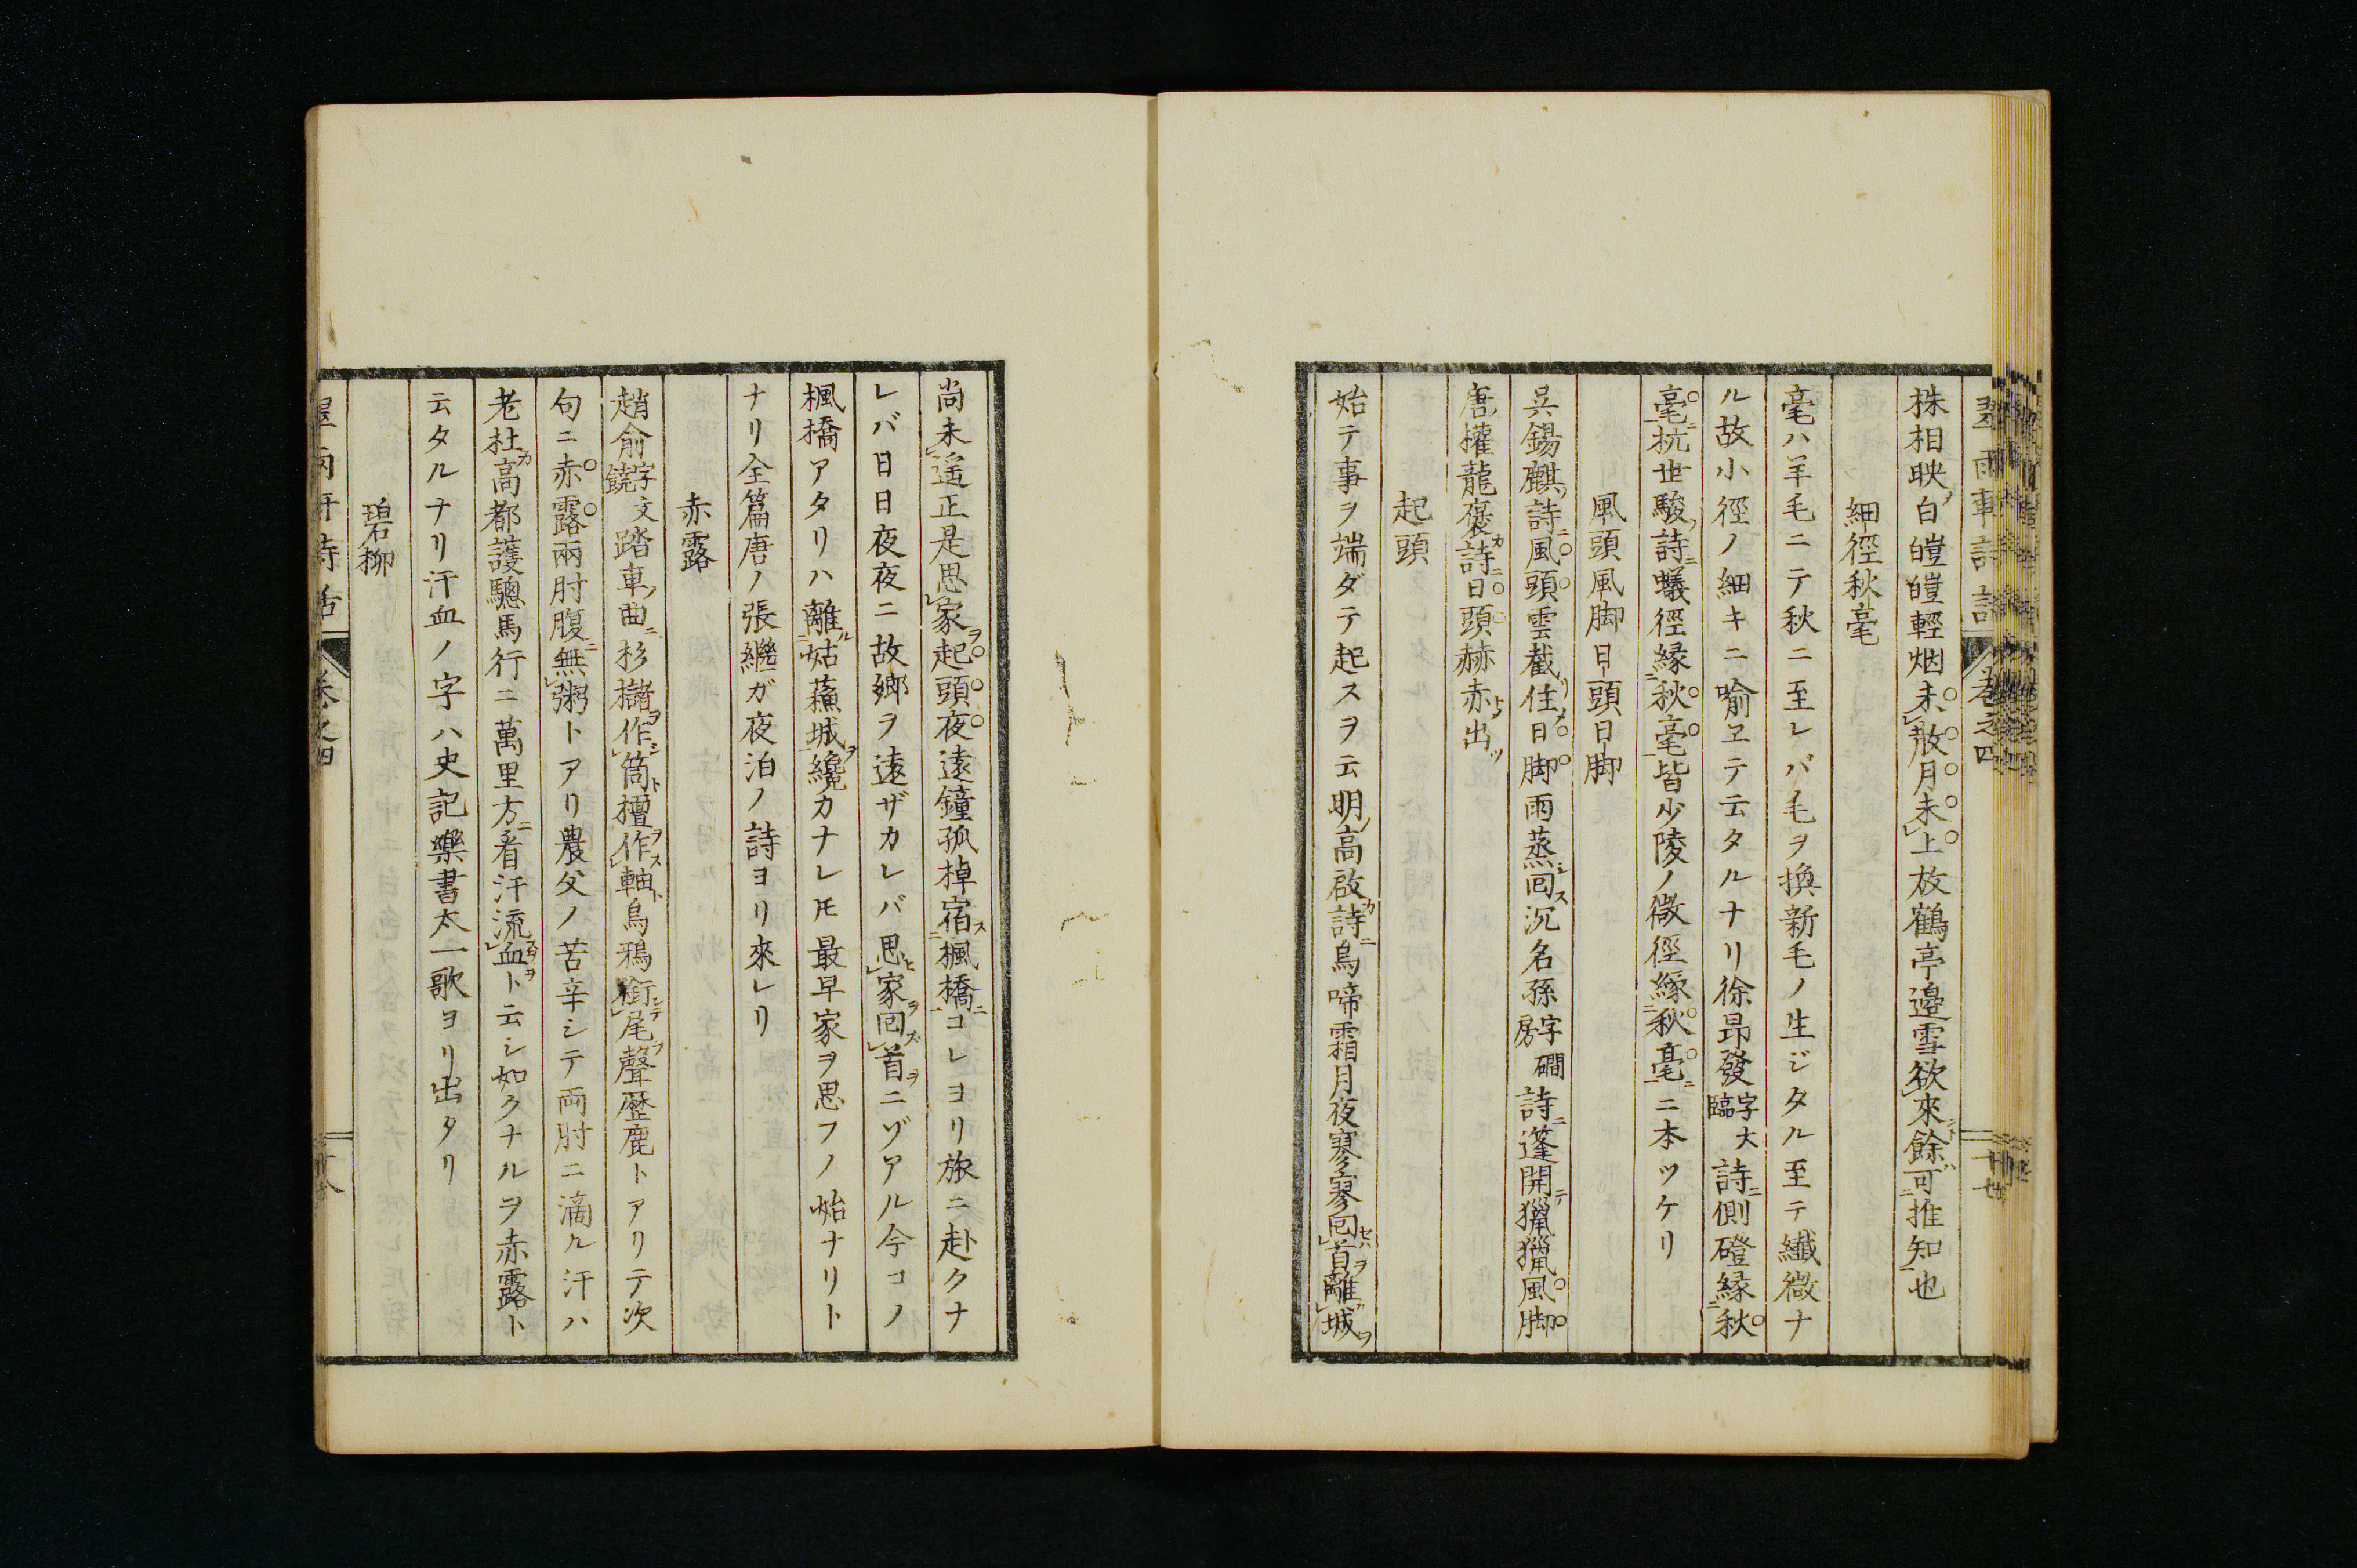 株相映白皚皚輕烟未散月未上放鶴亭邉雪欲來餘可推知也
細徑秋毫
毫ハ羊毛ニテ秋ニ至レバ毛ヲ換新毛ノ生ジタル至テ纎微ナ
ル故小徑ノ細キニ喻ヱテ云タルナリ徐昂發字大臨詩側磴緣秋
毫杭世駿詩蟻徑緣秋毫皆少陵ノ微徑緣秋毫ニ本ツケリ
風頭風脚日頭日脚
呉錫麒詩風頭雲截住日脚雨蒸回沉名孫字磵房詩蓬開獵獵風脚
唐權龍褒詩日頭赫赤出
起頭
始テ事ヲ端ダテ起スヲ云明高啟詩烏啼霜月夜寥寥回首離城
尚未遥正是思家起頭夜遠鐘孤棹宿楓橋コレヨリ旅ニ赴クナ
レバ日日夜夜ニ故郷ヲ遠ザカレバ思家回首ニゾアル今コノ
楓橋アタリハ離姑蘓城纔カナレ𪜈最早家ヲ思フノ始ナリト
ナリ全篇唐ノ張繼ガ夜泊ノ詩ヨリ來レリ
赤露
趙俞字文饒踏車曲杉櫧作筒檀作軸烏鴉銜尾聲歴鹿トアリテ次
句ニ赤露兩肘腹無粥トアリ農父ノ苦辛シテ両肘ニ滴ル汗ハ
老杜高都護驄馬行ニ萬里方看汗流血ト云シ如クナルヲ赤露ト
云タルナリ汗血ノ字ハ史記樂書太一歌ヨリ出タリ
碧柳